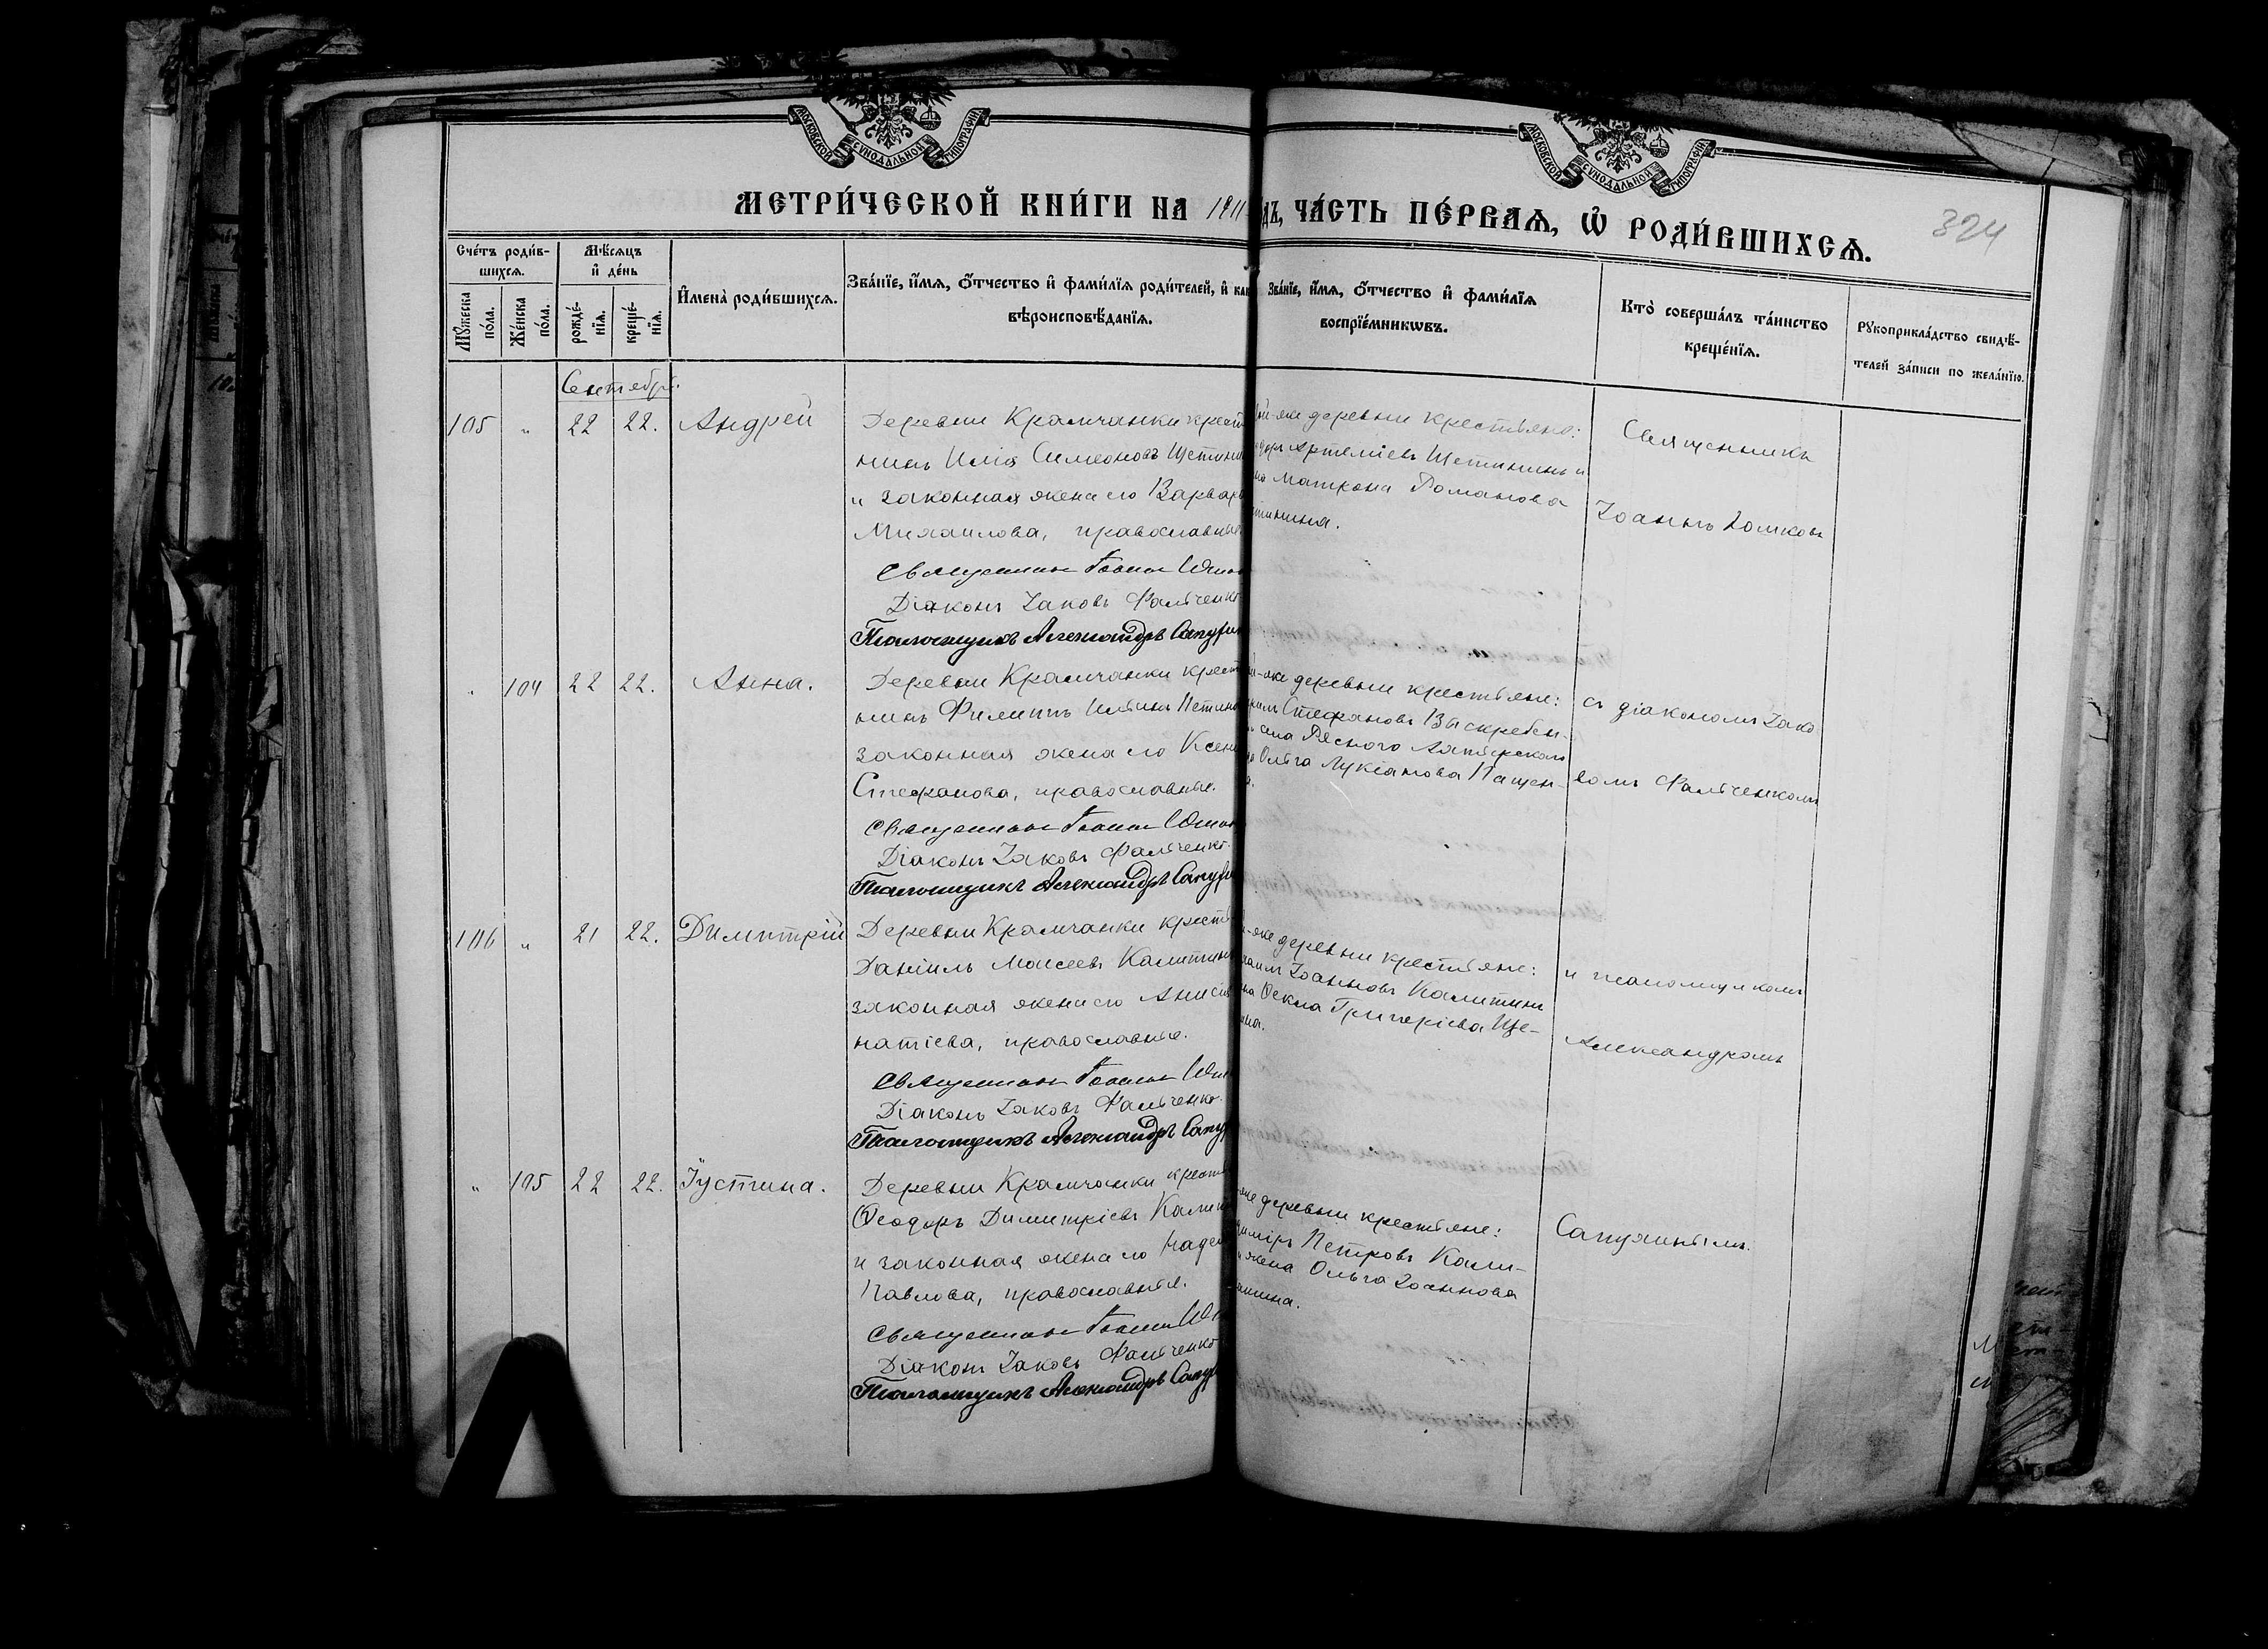 МОСКОВСКОЙ СѴНОДАЛЬНОЙ ТИПОГРАФІИ
МОСКОВСКОЙ СѴНОДАЛЬНОЙ ТИПОГРАФІИ
МЕТРИ́ЧЕСКОЙ КНИ́ГИ НА 1911 ДЪ, ЧА́СТЬ ПЕ́РВАѦ, Ѿ РОДИ́ВШИХСѦ.
324
Сче́тъ роди́в-
шихсѧ.
Мѹжеска по́ла.
Же́нска по́ла.
Мѣ́сѧцъ
и҆ де́нь
рожде́-
нїѧ.
креще́-
нїѧ.
И҆мена̀ роди́вшихсѧ.
Зва́нїе, и҆́мѧ, ѻ҆́тчество и҆ фами́лїѧ роди́телей, и҆ как
вѣроисповѣ́данїѧ.
Зва́нїе, и҆́мѧ, ѻ҆́тчество и҆ фами́лїѧ
воспрїе́мникѡвъ.
Кто̀ соверша́лъ та́инство
креще́нїѧ.
Рꙋкоприкла́дство свидѣ́-
телей за́писи по жела́нїю.
Сентябрь.
105 " 22 22. Андрей
Деревни Крамчанки крестья
нинъ Илія Симеоновъ Щетини
и законная жена его Варвар
Михаилова, православные
Священникъ Іоаннъ
Діаконъ Іаковъ Фальченко
Псаломщикъ Александръ Сапух
той-же деревни крестьяне:
Артеміевъ Щетининъ и
Матрона Романова
тинина.
Священникъ
Іоаннъ
" 104 22 22. Анна.
Деревни Крамчанки крест
нинъ Филиппъ Ильинъ Щетин
законная жена его Ксен
Стефанова, православные.
Священникъ Іоаннъ
Діаконъ Іаковъ Фальченко.
Псаломщикъ Александръ Сапух
й-же деревни крестьяне:
Стефановъ Выскребен-
села Рясного Ахтырскаго
Ольга Лукіанова Пащен-
съ діакономъ Іако
вомъ Фальченкомъ
106 " 21 22. Димитрій
Деревни Крамчанки крестья
Даніилъ Моисеевъ Калитин
законная жена его Анисія
натіева, православные.
Священникъ Іоаннъ
Діаконъ Іаковъ Фальченко.
Псаломщикъ Александръ Сапу
-же деревни крестьяне:
Іоанновъ Калитинъ
Ѳекла Григоріева Ще-
ина.
и псаломщикомъ
Александромъ
" 105 22 22. Іустина.
Деревни Крамчанки крестья
Ѳеодоръ Димитріевъ Калит
и законная жена его Надеж
Павлова, православные.
Священникъ Іоаннъ
Діаконъ Іаковъ Фальченко
Псаломщикъ Александръ Сапух
-же деревни крестьяне:
Петровъ Кали-
жена Ольга Іоаннова
тинина.
Сапухинымъ.